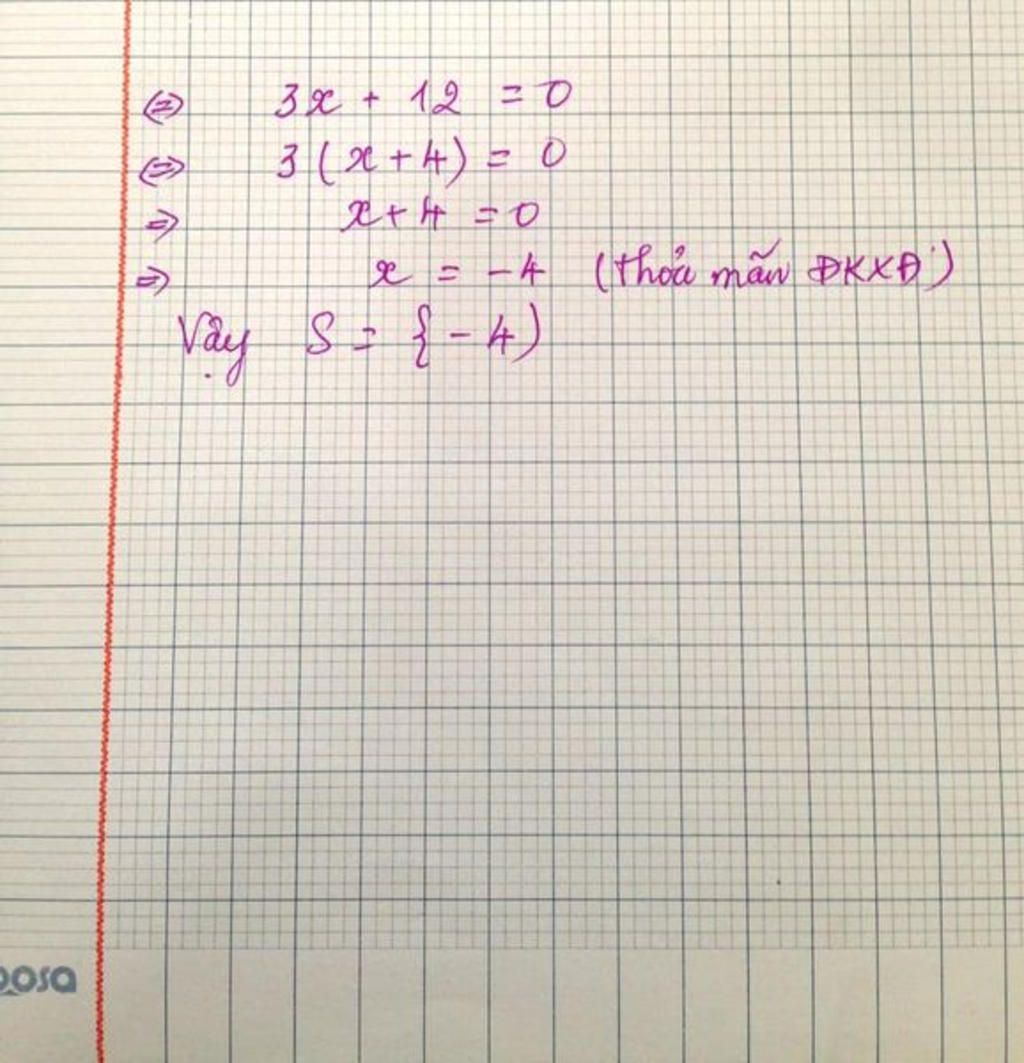 ⇔ 3x + 12 = 0
⇔ 3(x+4) = 0
⇒ x+4 = 0
⇒ x = -4 (thỏa mãn ĐKXĐ)
Vậy S = {-4)
osa